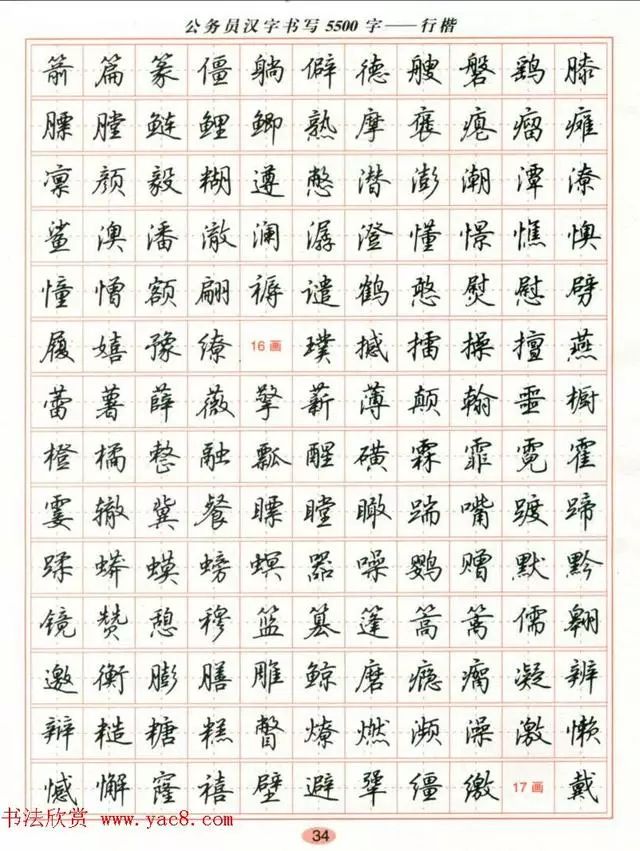 公务员汉字书写5500字——行楷
箭篇篆僵躺僻德艘磐鹞膝
膘膛鲢鲤鲫熟摩褒疱瘤瘫
凛颜毅糊遵憋潜澎潮潭潦
鲨澳潘澈澜潺澄懂憬憔懊
憧憎额翩褥谴鹤憨熨慰劈
履嬉豫缭16画璞撼擂操擅燕
蕾薯薛薇擎薪薄颠翰噩橱
橙橘整融瓢醒磺霖霏霓霍
霎辙冀餐瞟瞠瞰踹嘴踱蹄
蹂蟒蟆螃螟器噪鹦赠默黔
镜赞憩穆篮篡篷篙篱儒翱
邀衡膨膳雕鲸磨瘾瘸凝辨
辩糙糖糕瞥燎燃濒澡激懒
憾懈窿禧壁避犟缰缴17画戴
书法欣赏 www.yac8.com
34